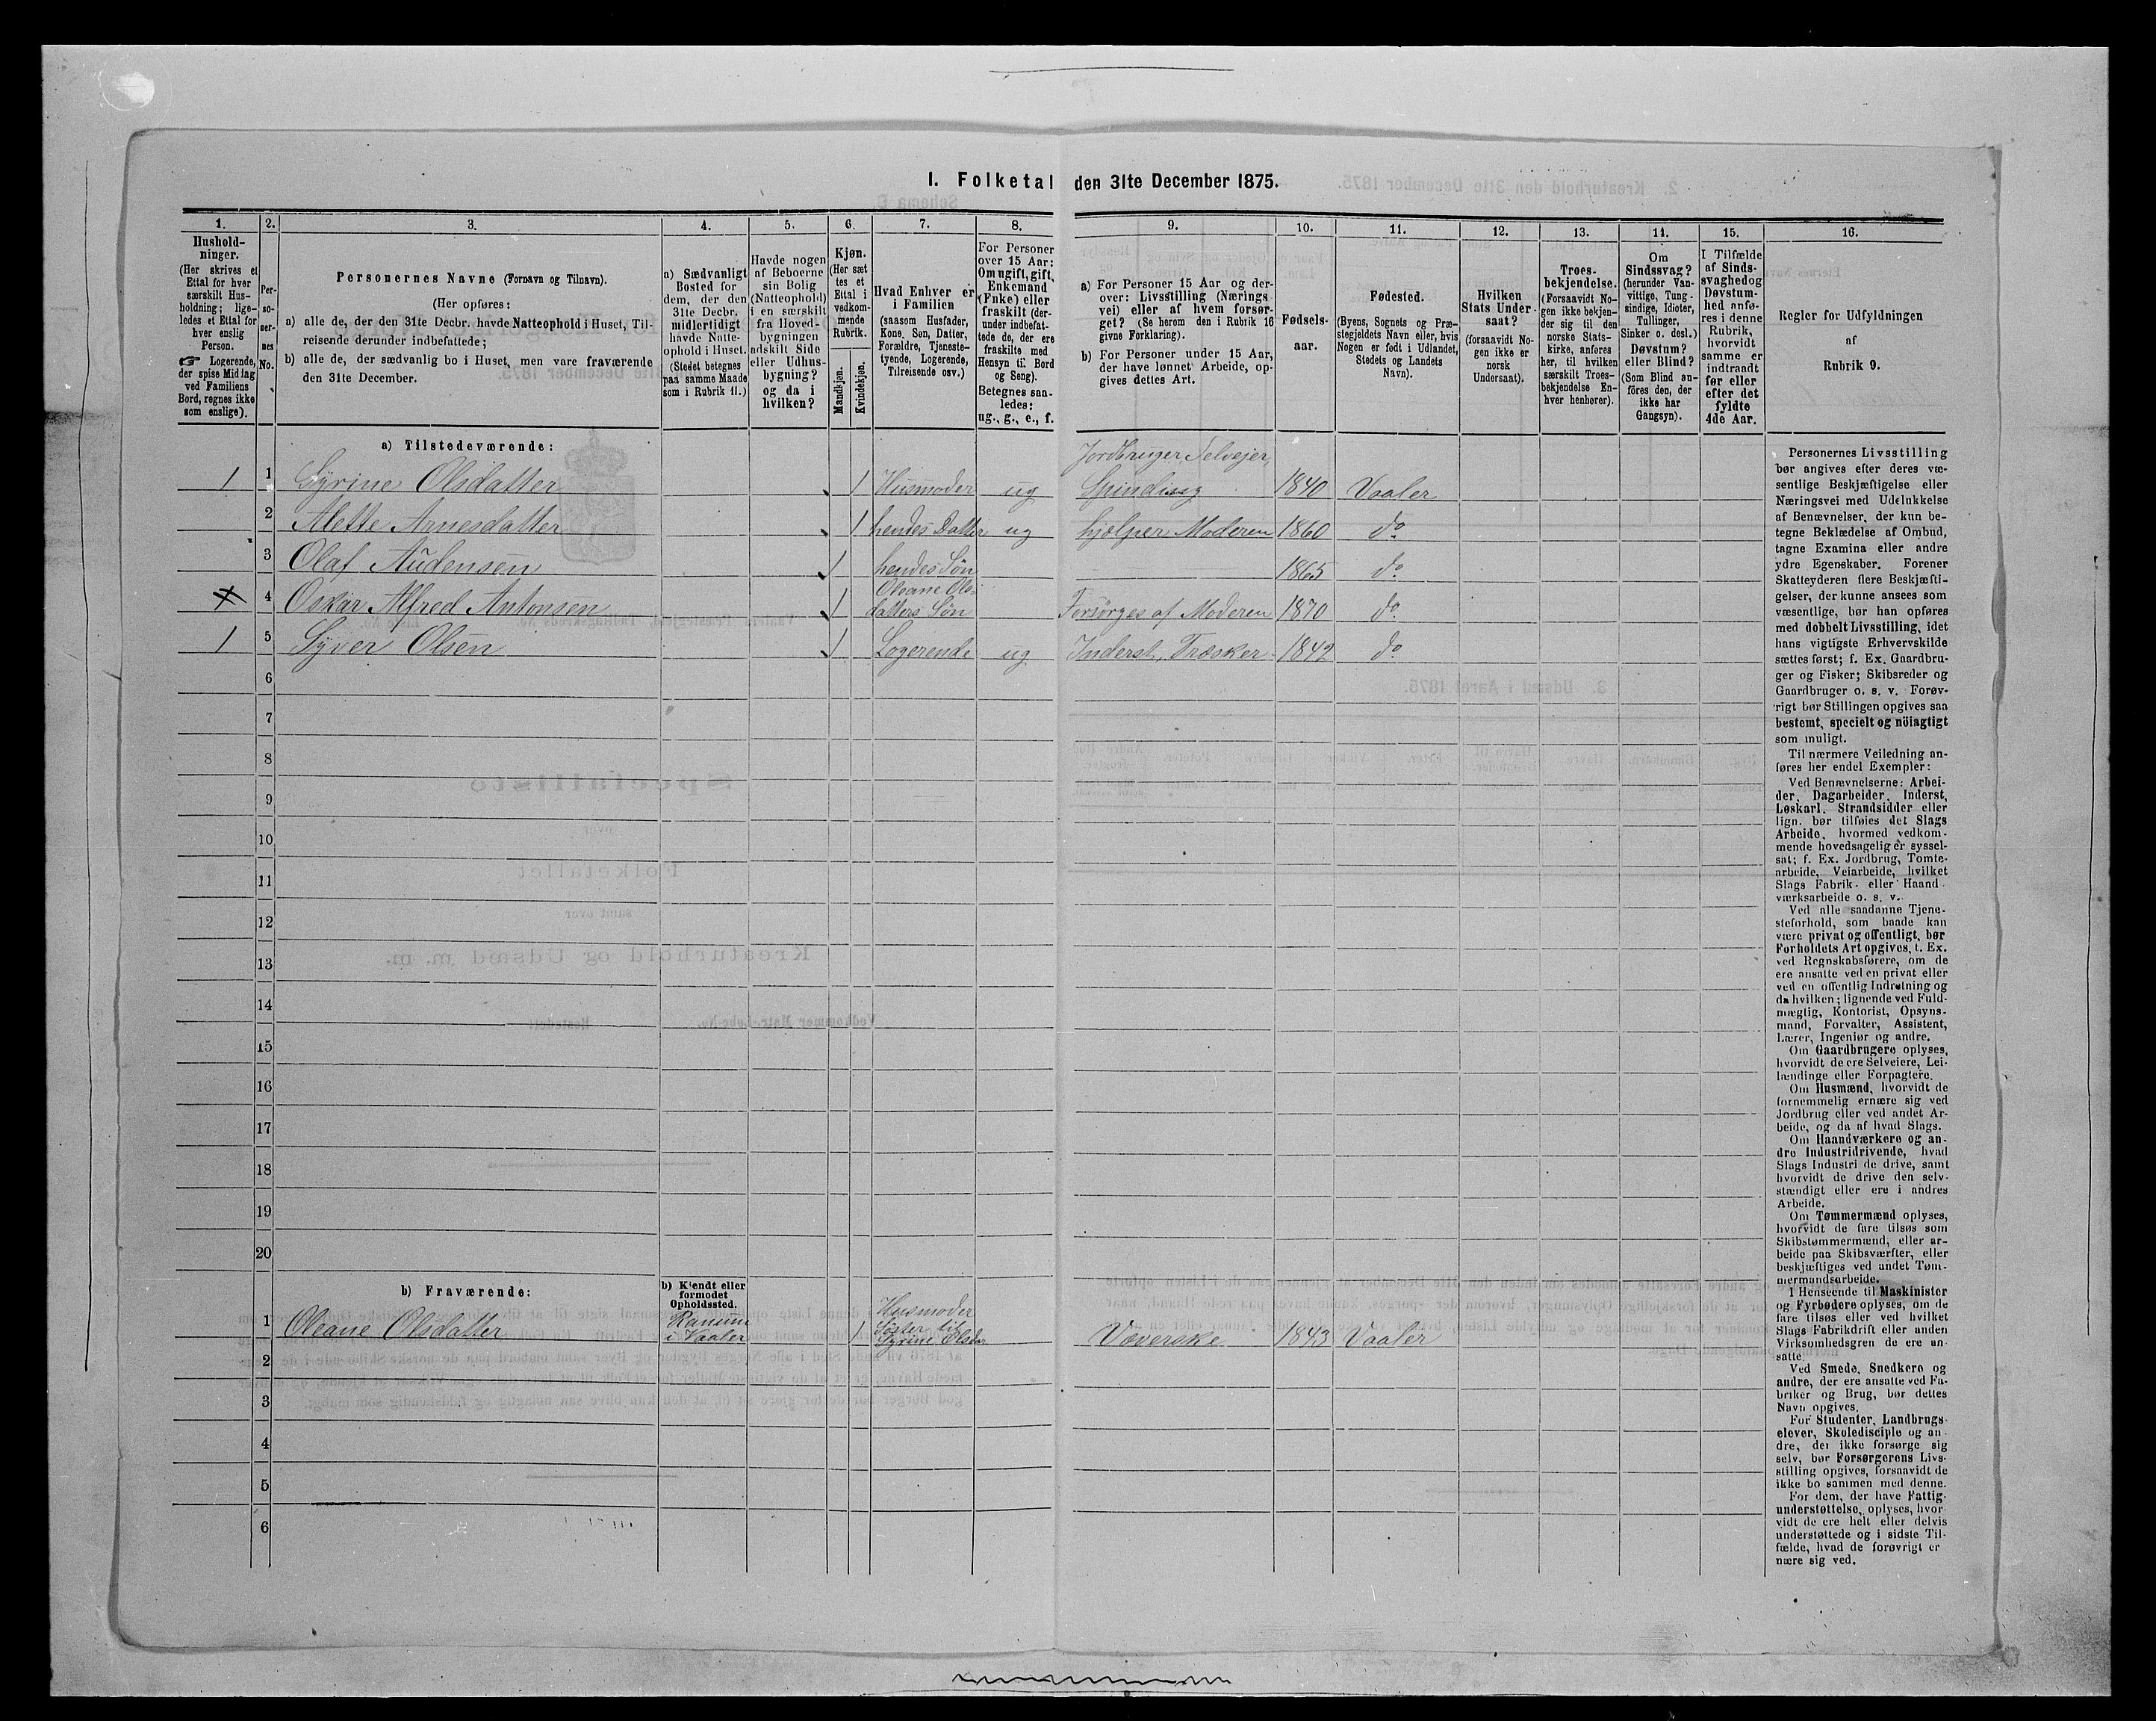 I. Folketal den 31te December 1875.
1.
Hushold-
ninger.
(Her skrives et
Ettal for hver
særskilt Hus-
holdning; lige-
ledes et Ettal for
hver enslig
Person.
☞ Logerende,
der spise Middag
ved Familiens
Bord, regnes ikke
som enslige).
2.
Per-
so-
ner-
nes
No.
3.
Personernes Navne (Fornavn og Tilnavn).
(Her opføres:
a) alle de, der den 31te Decbr. havde Natteophold i Huset, Til-
reisende derunder indbefattede;
b) alle de, der sædvanlig bo i Huset, men vare fraværende
den 31te December.
4.
a) Sædvanligt
Bosted for
dem, der den
31te Decbr.
midlertidigt
havde Natte-
ophold i Huset.
(Stedet betegnes
paa samme Maade
som i Rubrik 11.)
5.
Havde nogen
af Beboerne
sin Bolig
(Natteophold)
i en særskilt
fra Hoved-
bygningen
adskilt Side
eller Udhus-
bygning?
og da i
hvilken?
6.
Kjøn.
(Her sæt
tes et
Ettal i
vedkom-
mende
Rubrik.
Mandkjøn.
Kvindekjøn.
7.
Hvad Enhver er
i Familien
(saasom Husfader,
Kone, Søn, Datter,
Forældre, Tjeneste-
tyende, Logerende,
Tilreisende osv.)
8.
For Personer
over 15 Aar:
Om ugift, gift,
Enkemand
(Enke) eller
fraskilt (der-
under indbefat-
tede de, der ere
fraskilte med
Hensyn til Bord
og Seng).
Betegnes saa-
ledes:
ug., g., e., f.
9.
a) For Personer 15 Aar og der-
over: Livsstilling (Nærings
vei) eller af hvem forsør-
get? (Se herom den i Rubrik 16
givne Forklaring).
b) For Personer under 15 Aar,
der have lønnet Arbeide, op-
gives dettes Art.
10.
Fødsels-
aar.
11.
Fødested.
(Byens, Sognets og Præ-
stegjeldets Navn eller, hvis
Nogen er født i Udlandet,
Stedets og Landets
Navn).
12.
Hvilken
Stats Under-
saat?
(forsaavidt No-
gen ikke er
norsk
Undersaat).
13.
Troes-
bekjendelse.
(Forsaavidt No-
gen ikke bekjen-
der sig til den
norske Stats-
kirke, anføres
her, til hvilken
særskilt Troes-
bekjendelse En-
hver henhører).
14.
Om
Sindssvag?
(herunder Van-
vittige, Tung-
sindige, Idioter,
Tullinger,
Sinker o. desl.)
Døvstum?
eller Blind?
(Som Blind an-
føres den, der
ikke har
Gangsyn).
15.
I Tilfælde
af Sinds-
svaghed og
Døvstum-
hed anfø-
res i denne
Rubrik,
hvorvidt
samme er
indtraadt
før eller
efter det
fyldte
4de Aar.
16.
Regler for Udfyldningen
af
Rubrik 9.
a) Tilstedeværende:
Jordbruger, Selvejer,
1 1 Syrine Olsdatter 1 Husmoder ug Spinding 1840 Vaaler
2 Alette Arnesdatter 1 hendes Datter ug hjelper Moderen 1860 do
3 Olaf Audensen 1 hendes Søn 1865 do
Oleane Ols-
4 Oskar Alfred Antonsen 1 datters Søn Forsørges af Moderen 1870 do
1 5 Syver Olsen 1 Logerende ug Inderst, Træsker 1842 do
6
7
8
9
10
11
12
13
14
15
16
17
18
19
20
b) Fraværende:
b) Kjendt eller
formodet
Opholdssted.
1 Oleane Olsdatter
i Vaaler
1
Husmoder
Søster til
Syrine Olsdtr
Væverske 1843 Vaaler
2
3
4
5
6
Personernes Livsstilling
bør angives efter deres væ-
sentlige Beskjæftigelse eller
Næringsvei med Udelukkelse
af Benævnelser, der kun be-
tegne Beklædelse af Ombud,
tagne Examina eller andre
ydre Egenskaber. Forener
Skatteyderen flere Beskjæfti-
gelser, der kunne ansees som
væsentlige, bør han opføres
med dobbelt Livsstilling, idet
hans vigtigste Erhvervskilde
sættes først; f. Ex. Gaardbru-
ger og Fisker; Skibsreder og
Gaardbruger o. s. v. Forøv-
rigt bør Stillingen opgives saa
bestemt, specielt og nöiagtigt
som muligt.
Til nærmere Veiledning an-
føres her endel Exempler:
Ved Benævnelserne: Arbei-
der, Dagarbeider, Inderst,
Løskarl, Strandsidder eller
lign. bør tilføies det Slags
Arbeide, hvormed vedkom-
mende hovedsagelig er syssel-
sat; f. Ex. Jordbrug, Tomte-
arbeide, Veiarbeide, hvilket
Slags Fabrik- eller Haand
værksarbeide o. s. v.
Ved alle saadanne Tjene-
steforhold, som baade kan
være privat og offentligt, bør
Forholdets Art opgives, f. Ex.
ved Regnskabsførere, om de
ere ansatte ved en privat eller
ved en offentlig Indretning og
da hvilken; lignende ved Fuld-
mægtig, Kontorist, Opsyns-
mand, Forvalter, Assistent,
Lærer, Ingeniør og andre.
Om Gaardbrugere oplyses,
hvorvidt de ere Selveiere, Lei-
lændinge eller Forpagtere.
Om Husmænd, hvorvidt de
fornemmelig ernære sig ved
Jordbrug eller ved andet Ar-
beide, og da af hvad Slags.
Om Haandværkere og an-
dre Industridrivende, hvad
Slags Industri de drive, samt
hvorvidt de drive den selv-
stændigt eller ere i andres
Arbeide.
Om Tømmermænd oplyses,
hvorvidt de fare tilsøs som
Skibstømmermænd, eller ar-
beide paa Skibsværfter, eller
beskjæftiges ved andet Tøm-
mermandsarbeide.
I Henseende til Maskinister
og Fyrbødere oplyses, om de
fare tilsøs eller ved hvilket
Slags Fabrikdrift eller anden
Virksomhedsgren de ere an-
satte
Ved Smede, Snedkere og
andre, der ere ansatte ved Fa-
briker og Brug, bør dettes
Navn opgives.
For Studenter, Landbrugs
elever, Skoledisciple og an-
dre, der ikke forsørge sig
selv, bør Forsørgerens Livs-
stilling opgives, forsaavidt de
ikke bo sammen med denne.
For dem, der have Fattig-
understøttelse, oplyses, hvor-
vidt de ere helt eller delvis
understøttede og i sidste Til-
fælde, hvad de forøvrigt er
nære sig ved.